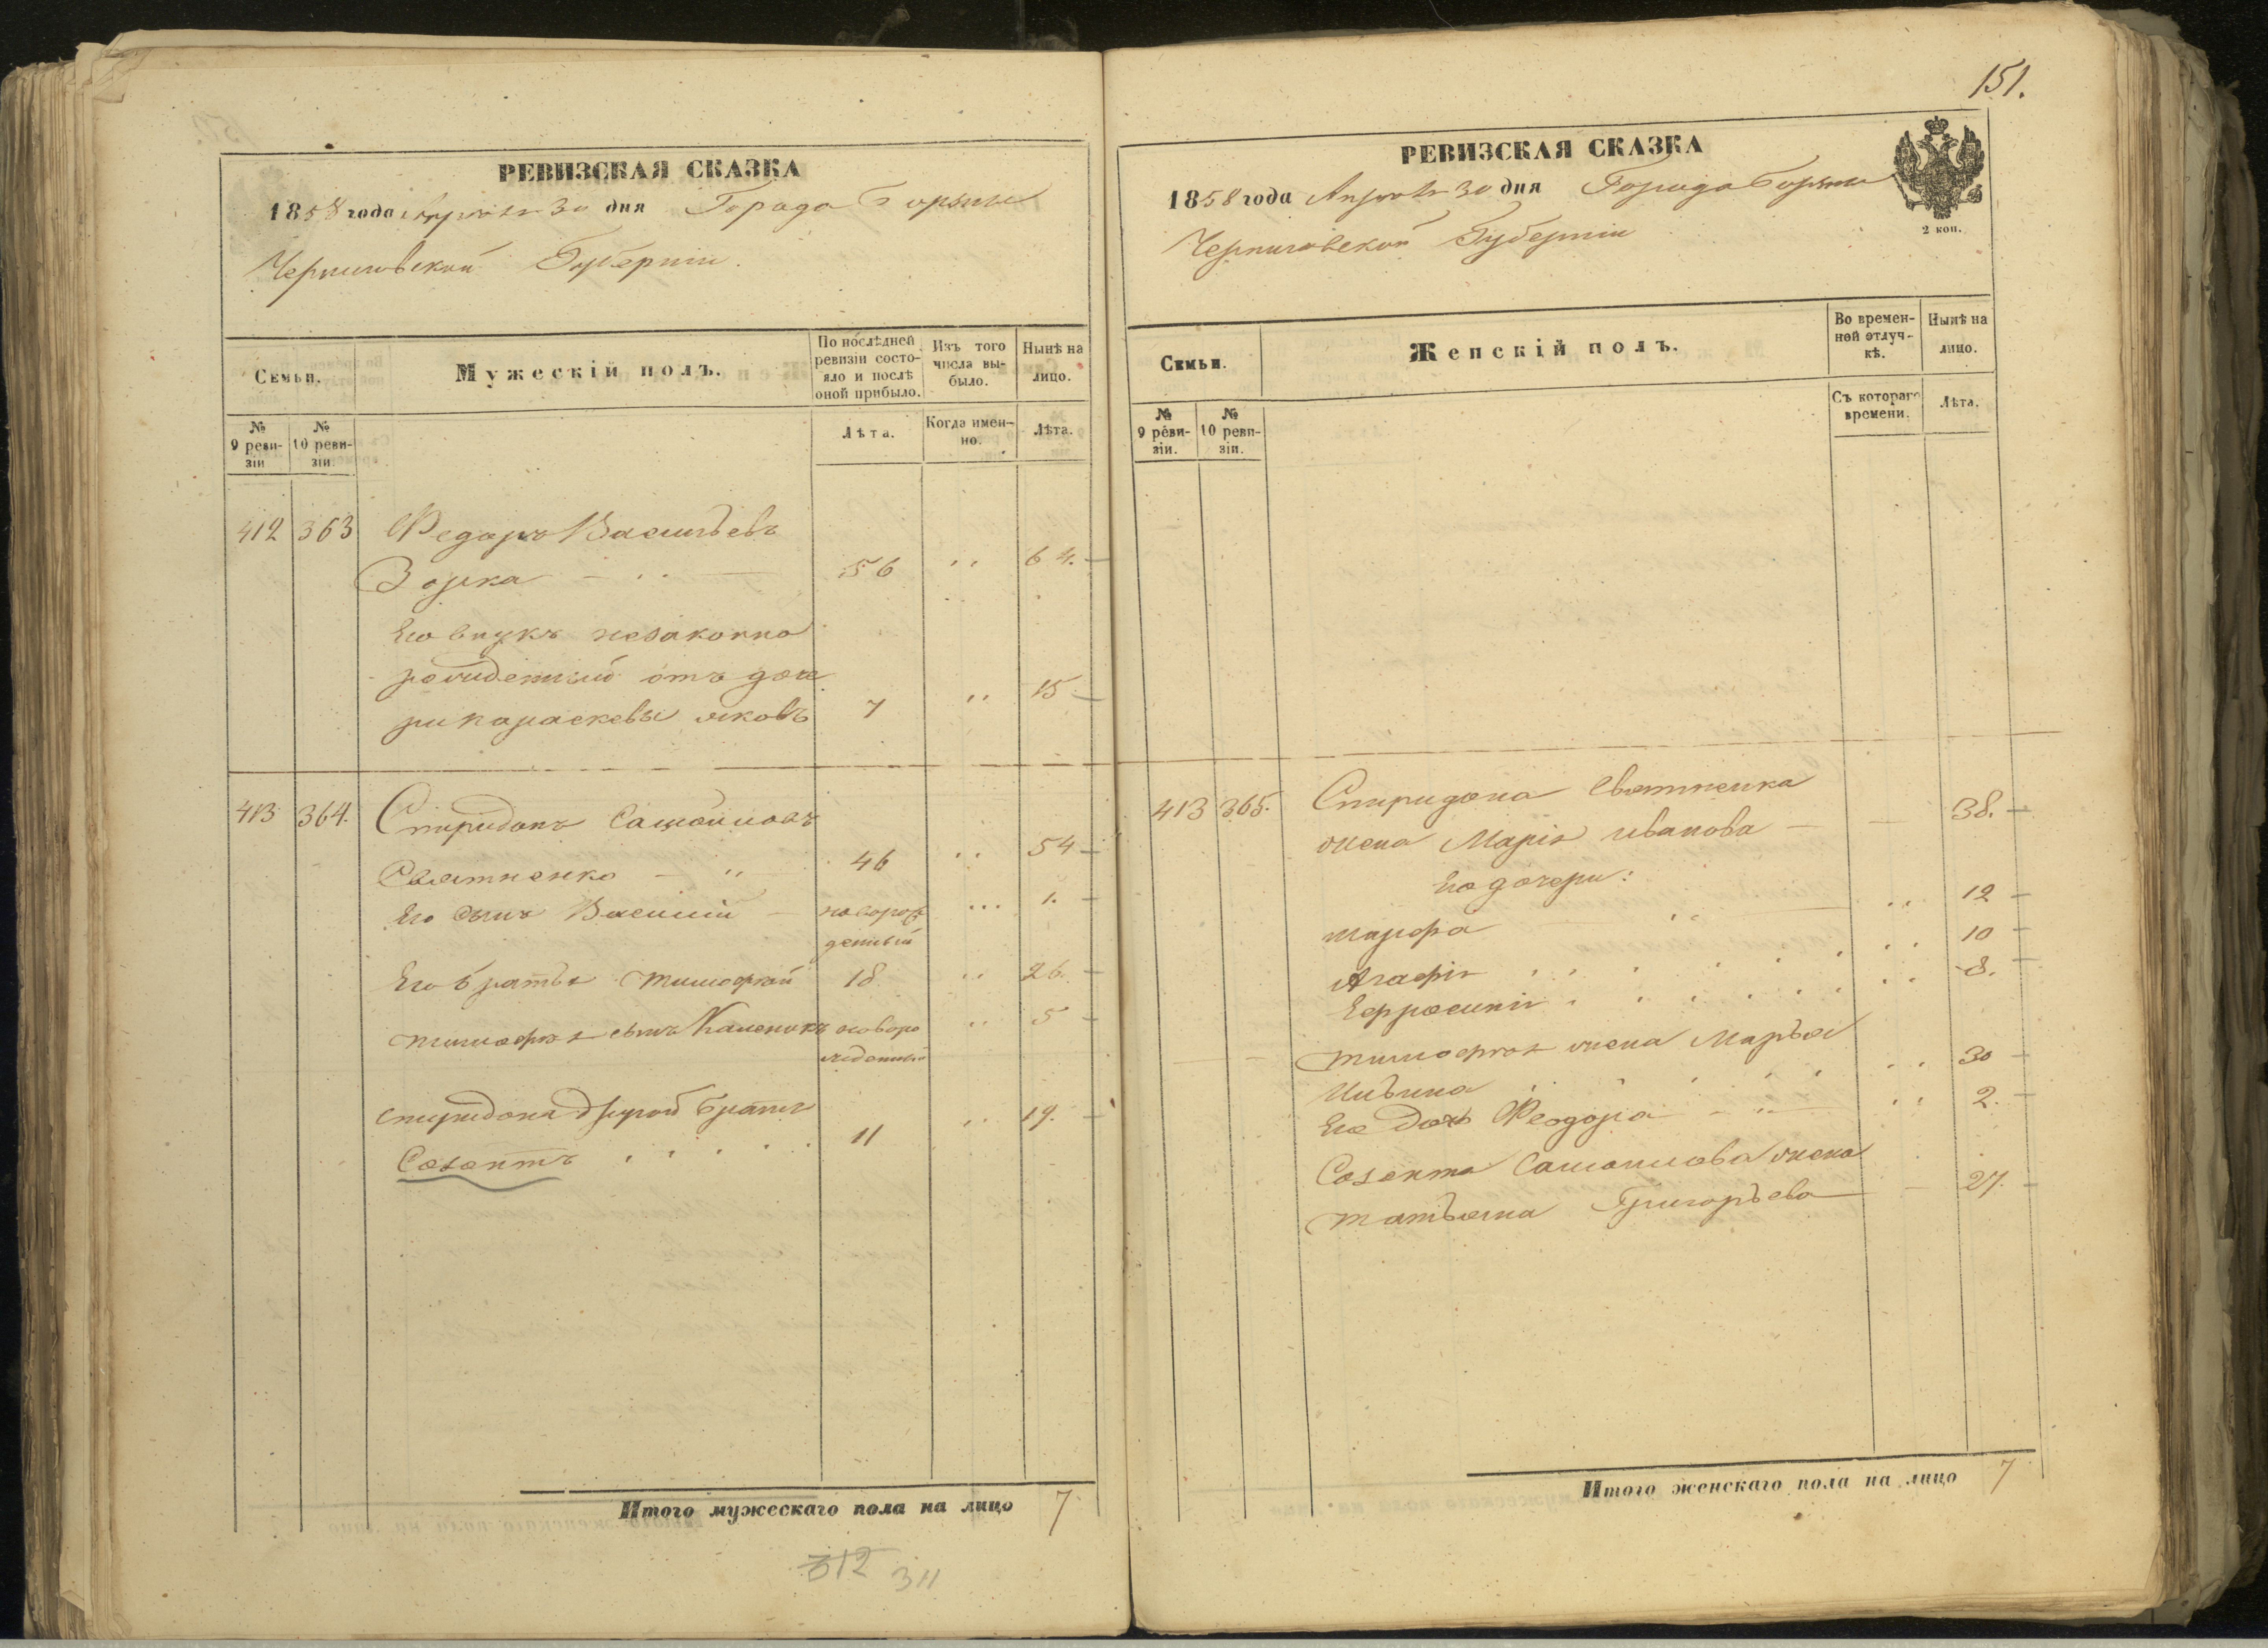 151.
РЕВИЗСКАЯ СКАЗКА
1858 года Апреля 30 дня Города Борзны
Черниговской Губерніи.
Семьи.
Мужескій полъ.
По послѣдней ревизіи состояло и послѣ оной прибыло.
Изъ того числа выбыло.
Нынѣ на лицо.
№ 9 ревизіи
№ 10 ревизіи.
Лѣта.
Когда именно.
Лѣта.
412 363 Федоръ Васильевъ
Зорка 56 64.
Его внукъ незаконно
рожденный отъ доче
ри Параскевы Яковъ 7 15
413 364. Спиридонъ Самойловъ
Святненко 46 54
Его сынъ Василій новорож 1.
денный
Его братья Тимофей 18 26.
Тимофея сынъ Каленикъ новоро 5
жденный
Спиридона другой братъ 19.
Созонтъ 11
Итого мужескаго пола на лицо 7
312 311
РЕВИЗСКАЯ СКАЗКА
1858 года Апреля 30 дня Города Борзны
Черниговской Губерніи
2 коп.
Семьи.
Женскій полъ.
Во временной отлучкѣ.
Нынѣ на лицо.
№ 9 ревизіи.
№ 10 ревизіи.
Съ котораго времени.
Лѣта.
413 365. Спиридона Святненка
жена Марія Иванова 38.
Его дочери:
12
10
Агафія 8.
Ефросинія
Тимофея жена Марья
30
Его дочь Феодора 2.
Созонта Самойлова жена
Татьяна Григорьева 27.
Итого женскаго пола на лицо 7